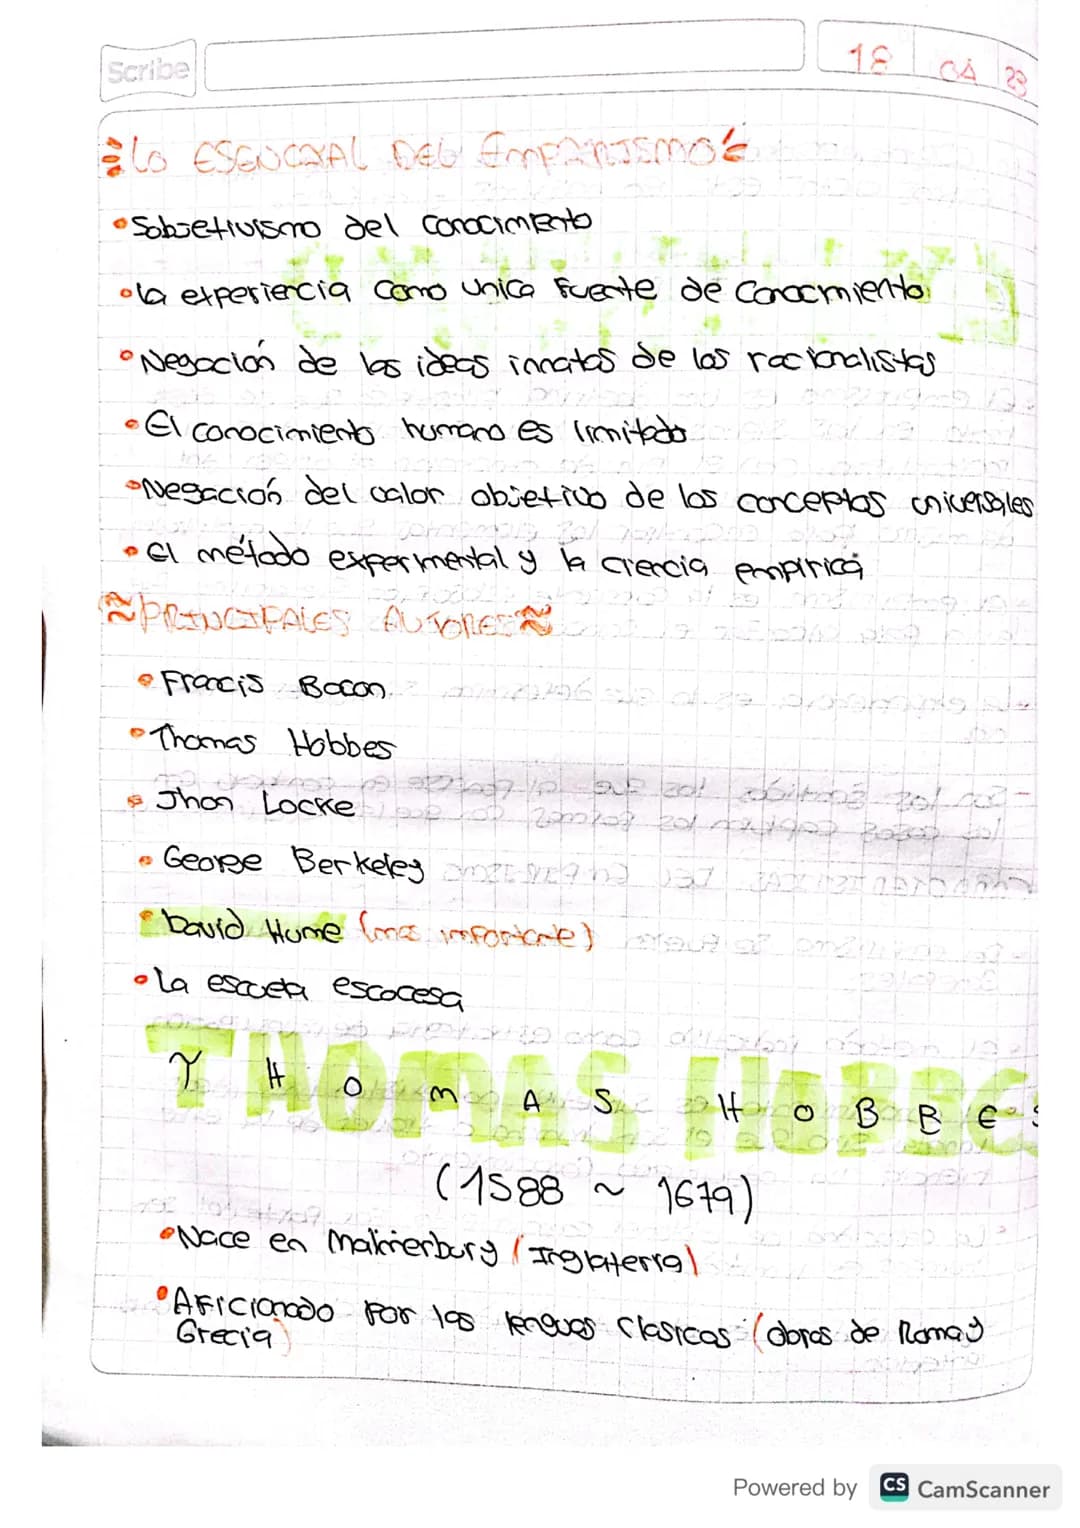 Scribe
18 04 23
Lo ESENCIAL DEL EMPIRISMO
•Sobjetivismo del conocimiento
•la experiencia como unica fuente de conocimiento
•Negación de las ideas innatas de los racionalistas
•El conocimiento humano es limitado
•Negación del valor objetivo de los conceptos universales
•El método experimental y la ciencia empirica
≈PRINCIPALES AUTORES≈
•Francis Bacon
•Thomas Hobbes
•Jhon Locke
•George Berkeley
•David Hume (mas importante)
•La escuela escocesa
THOMAS HOBBES
(1588 ~ 1679)
•Nace en (Inglaterra)
•Aficionado por las lenguas clasicas (obras de Roma y
Grecia)
Powered by CS CamScanner